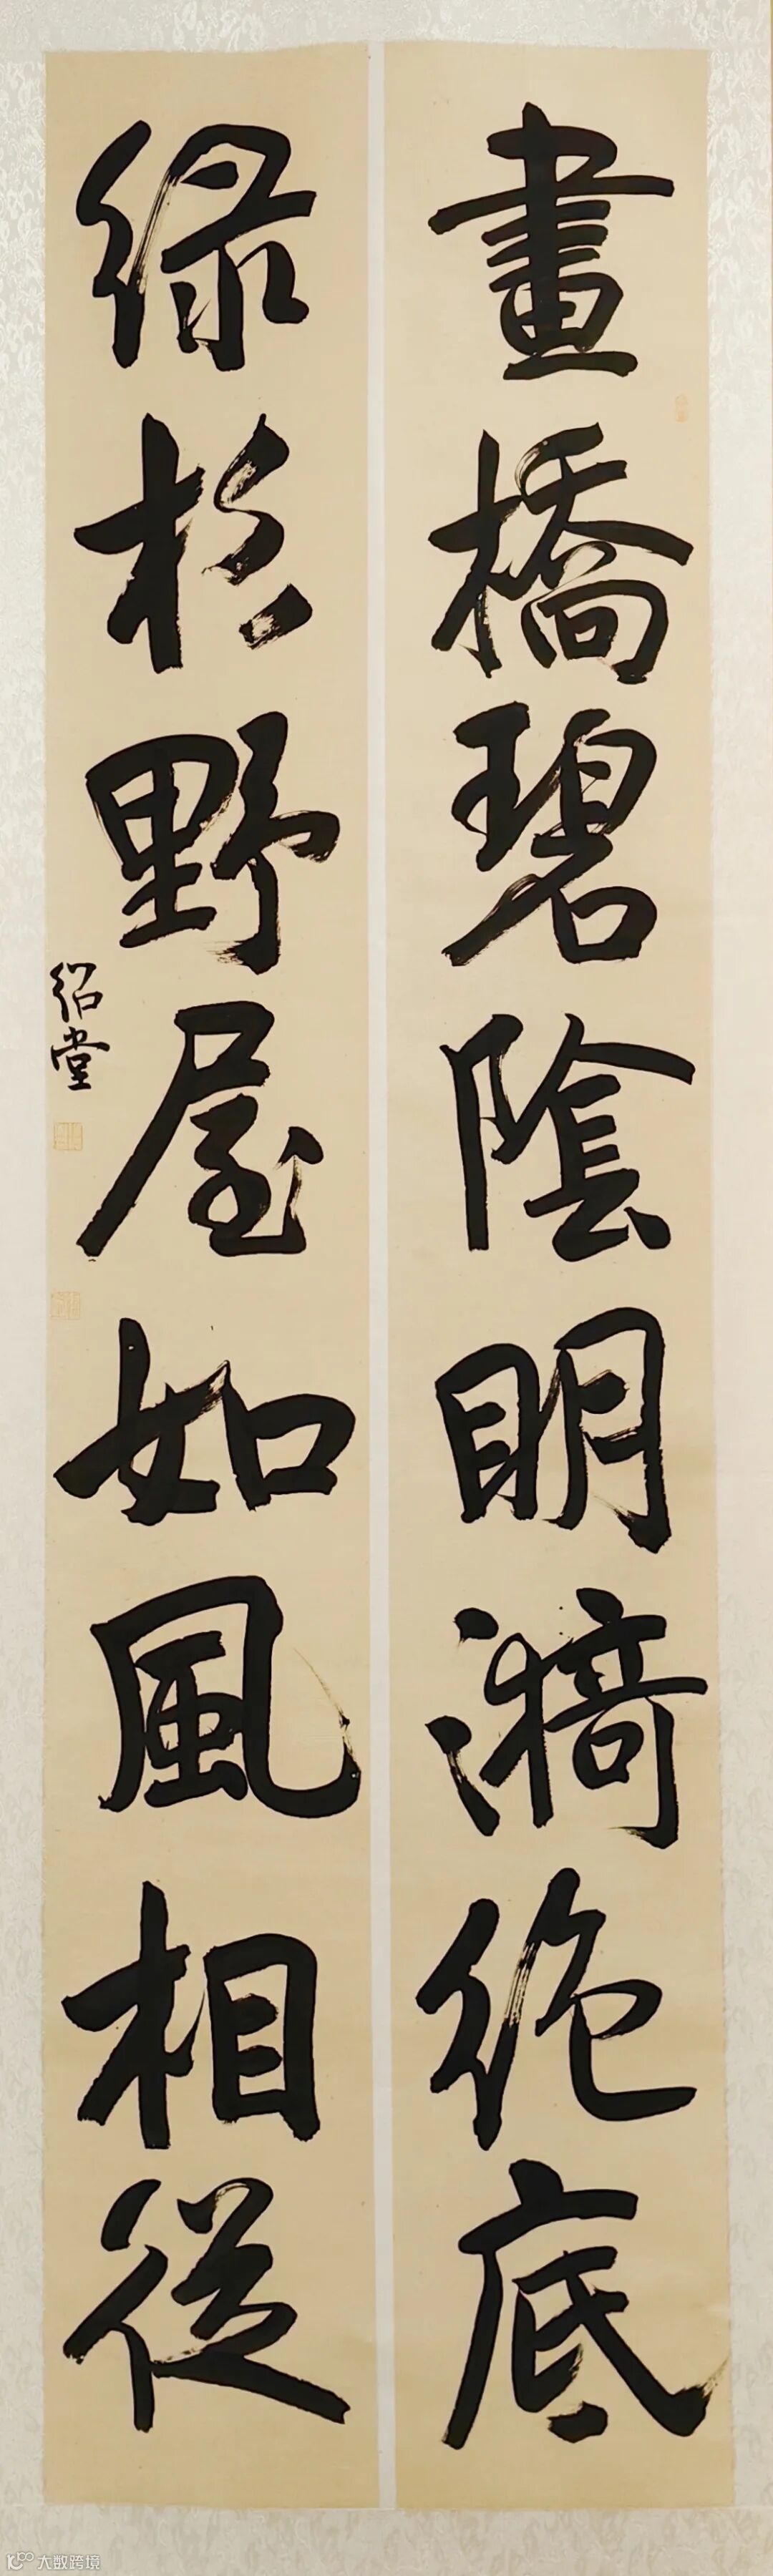 畫橋碧陰明漪絶底
緑杉野屋如風相從
紹堂
大数跨境